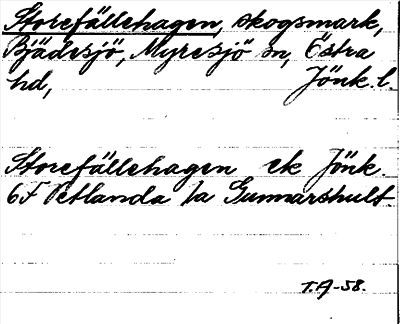 Storefällehagen, skogsmark,
Bjädesjö, Myresjö sn, Östra
hd, Jönk. l.
Storefällehagen ek Jönk.
6F Vetlanda 1a Gunnarshult
T.A-58.